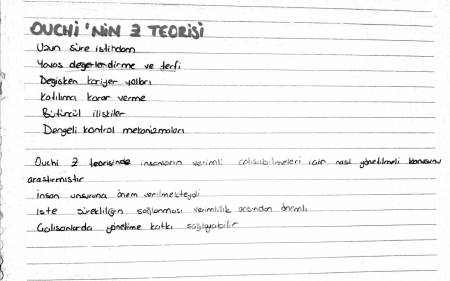 OUCHİ'NİN Z TEORİSİ
Uzun süre istihdam
Yavaş değerlendirme ve terfi
Değişken kariyer yolları
Katılıma karar verme
Bütüncül ilişkiler
Dengeli kontrol mekanizmaları
Ouchi Z teorisinde insanların verimli çalışabilmeleri için nasıl yönetilmeli konusunu
araştırmıştır
insan unsuruna önem verilmekteydi
İşte sürekliliğin sağlanması verimlilik açısından önemli
Çalışanlarda yönetime katkı sağlayabilir